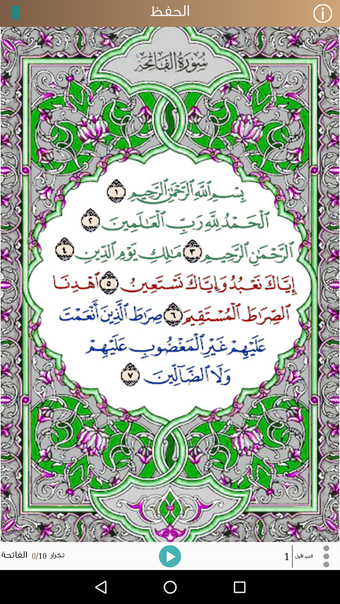 الحفظ
سُورَةُ الفَاتِحَةِ
بِسْمِ اللَّهِ الرَّحْمَٰنِ الرَّحِيمِ ١
الْحَمْدُ لِلَّهِ رَبِّ الْعَالَمِينَ ٢
الرَّحْمَٰنِ الرَّحِيمِ ٣ مَالِكِ يَوْمِ الدِّينِ ٤
إِيَّاكَ نَعْبُدُ وَإِيَّاكَ نَسْتَعِينُ ٥ اهْدِنَا
الصِّرَاطَ الْمُسْتَقِيمَ ٦ صِرَاطَ الَّذِينَ أَنْعَمْتَ
عَلَيْهِمْ غَيْرِ الْمَغْضُوبِ عَلَيْهِمْ
وَلَا الضَّالِّينَ ٧
الجزء الأول 1 تكرار 0/10 الفاتحة